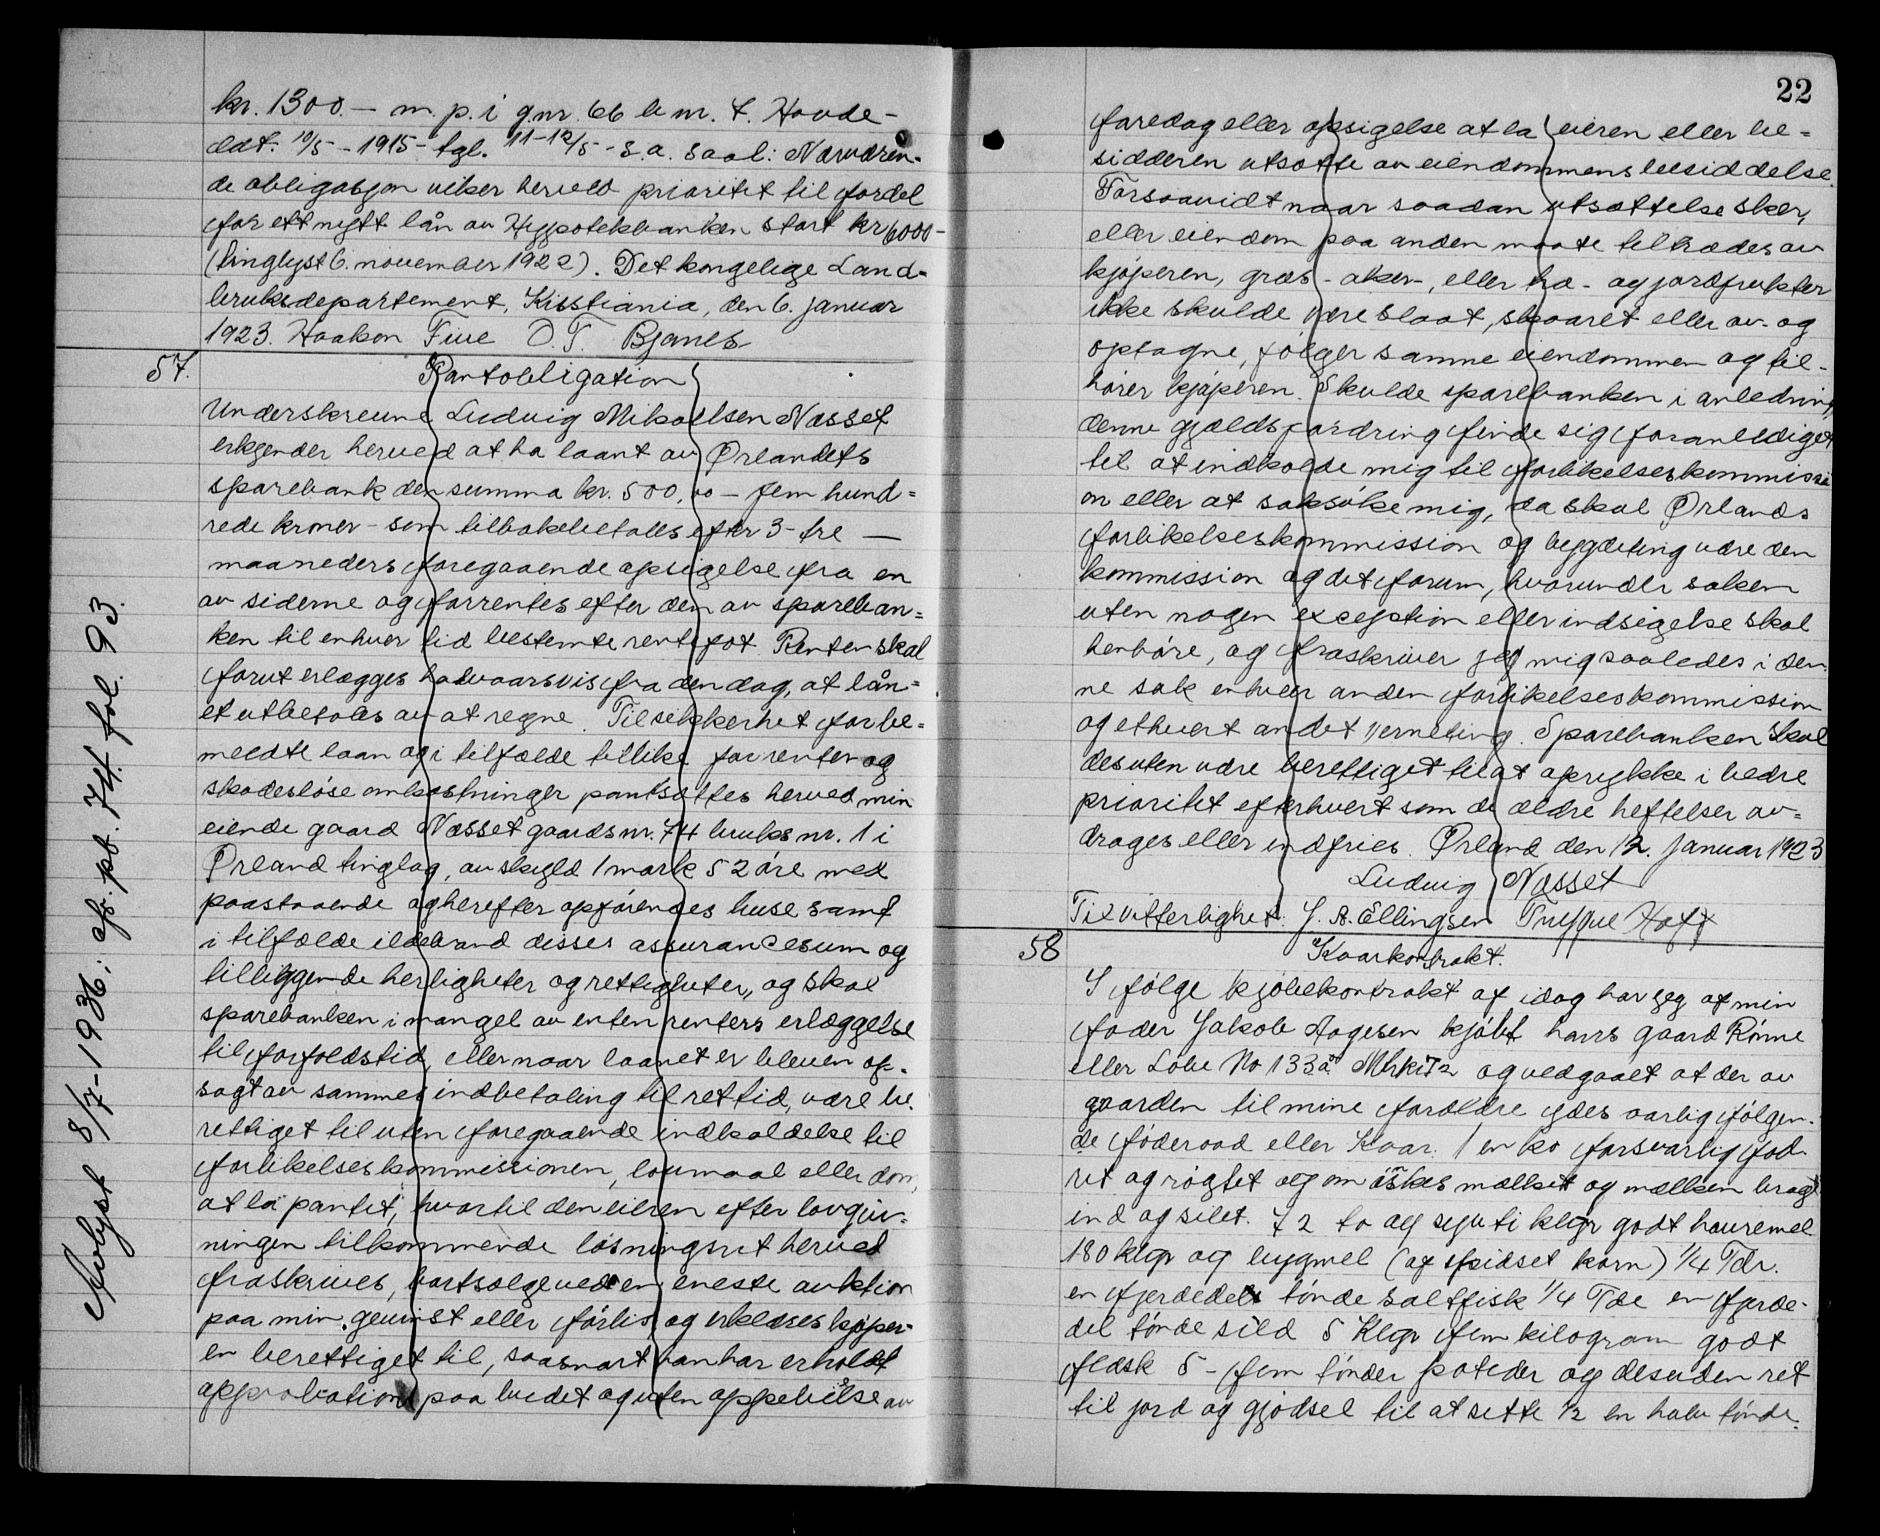 kr. 1300.— m. p. i gnr. 66 b nr. 4. Hovde-
ddt. 10/5 - 1915 - tgl. 11-12/5 - s. a. saal: Nærværen-
de obligasjon viker herved prioritet til fordel
for ett nytt lån av Hypotekbanken stort kr 6000-
(tinglyst 6. november 1922). Det kongelige Land-
bruksdepartement, Kristiania, den 6. januar
1923. Haakon Five O. T. Bjanes
57. Pantobligation
Underskrevne Ludvig Mikaelsen Næsset
erkjender herved at ha laant av Ørlandets
sparebank den summa kr. 500,00 — fem hund=
rede kroner - som tilbakebetales efter 3 - tre —
maaneders foregaaende opsigelse fra en
av siderne og forrentes efter den av spareban=
ken til enhver tid bestemte rentefot. Renten skal
forut erlægges halvaarsvis fra den dag, at lån=
et utbetales av at regne. Til sikkerhet for be=
meldte laan og i tilfælde tillike for renter og
skadesløse omkostninger pantsættes herved min
eiende gaard Næsset gaards nr. 74 bruks nr. 1 i
Ørland tinglag, av skyld 1 mark 52 øre med
paastaaende og herefter opførendes huse samt
i tilfælde ildebrand disses assurancesum og
tilliggende herligheter og rettigheter, og skal
sparebanken i mangel av enten renters erlæggelse
til forfaldstid, eller naar laanet er bleven op-
sagt av sammes indbetaling til ret tid, være be-
rettiget til uten foregaaende indkaldelse til
forlikelseskommissionen, lovmaal eller dom,
at la pantet, hvortil den eieren efter lovgiv-
ningen tilkommende løsningsret herved
fraskrives, bortsælge ved en eneste auktion
paa min gevinst eller forlis og erklæres kjøper-
en berettiget til, saasnart han har erholdt
approbation paa budet og uten oppebielse av
Avlyst 8/7-1936; afr. pb. 74. fol. 93.
22
faredag eller opsigelse at la eieren eller be=
sidderen utsætte av eiendommens besiddelse.
Forsaavidt naar saadan utsættelse sker,
eller eiendom paa anden maate tiltrædes av
kjøperen, græs- aker-, eller træ- og jordfrukter
ikke skulde være slaat, skaaret eller av- og
optagne, følger samme eiendommen og til-
hører kjøperen. Skulde sparebanken i anledning
denne gjældsfordring finde sig foranlediget
til at indkalde mig til forlikelseskommissi
on eller at saksøke mig, da skal Ørlands
forlikelseskommission og bygdeting være den
kommission og det forum, hvorunder saken
uten nogen exception eller indsigelse skal
henhøre, og fraskriver jeg mig saaledes i den-
ne sak enhver anden forlikelseskommission
og ethvert andet verneting. Sparebanken skal
desuten være berettiget til at oprykke i bedre
prioritet efterhvert som de ældre heftelser av=
drages eller indfries. Ørland den 12. januar 1923
Ludvig Næsset
Til vitterlighet: J. A. Ellingsen Trygve Hoff
58 Kaarkontrakt.
I følge kjøbekontrakt af idag har jeg af min
fader Jakob Aagesen kjøbt hans gaard Rønne
eller No 133a og vedgaaet at der av
gaarden til mine forældre ydes aarlig følgen-
de føderaad eller Kaar: 1 en ko forsvarlig fod-
ret og røgtet og om øskes mælket og mælken bragt
ind og silet. 72 to og sytti klgr godt havremel
180 klgr og bygmel (af spidset korn) 1/4 Tdr.
en fjerdedels tønde saltfisk 1/4 Tde en fjerde-
del tønde sild 5 Klgr fem kilogram godt
flæsk 5 - fem tønder poteder og desuden ret
til jord og gjødsel til at sette 1/2 en halv tønde